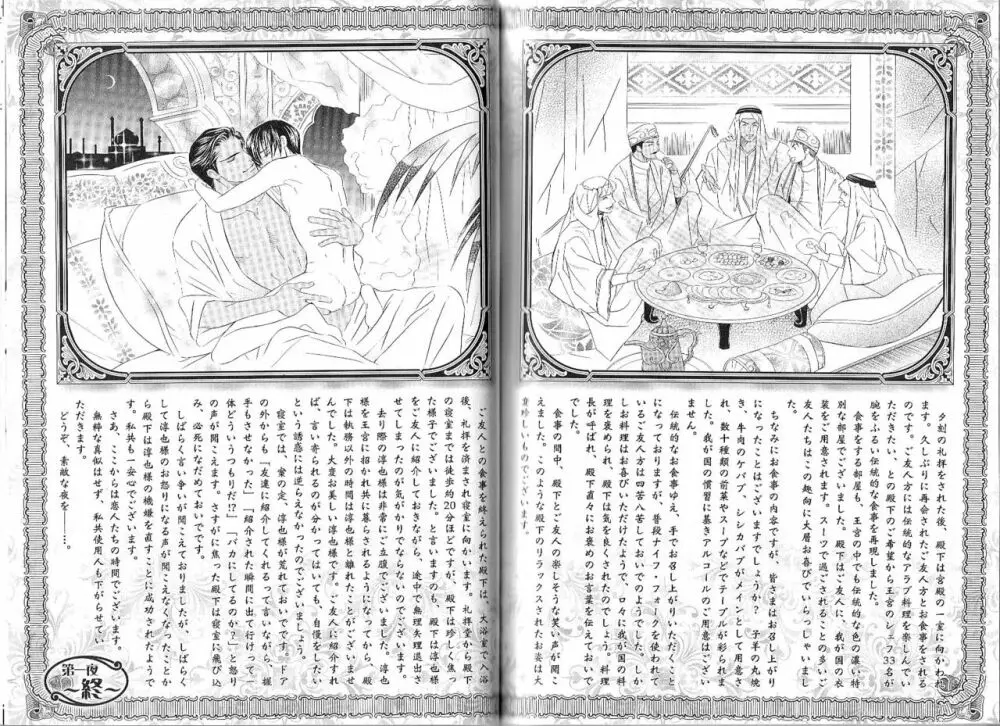 夕刻の礼拝をされた後、殿下は宮殿の一室に向かわれ
ます。久しぶりに再会されたご友人方とお食事をされる
のです。ご友人方には伝統的なアラブ料理を楽しんでい
ただきたい、との殿下のご希望から王宮のシェフ33名が
腕をふるい伝統的な食事を再現しました。
食事をする部屋も、王宮の中でも伝統的な色の濃い特
別な部屋でございました。殿下はご友人に、我が国の衣
装をご用意されます。スーツで過ごされることの多いご
友人たちはこの趣向に大層お喜びでいらっしゃいまし
た。
ちなみにお食事の内容ですが、皆さまはお召し上がり
になったことはございますでしょうか？ 子羊の丸焼
き、牛肉のケバブ、シシカバブがメインとして用意さ
れ、数十種類の前菜やスープなどでテーブルが彩られま
した。我が国の慣習に基きアルコールのご用意はござい
ません。
伝統的なお食事ゆえ、手でお召し上がりいただくこと
になっておりますが、普段ナイフ・フォークを使われて
いるご友人方は四苦八苦しておいでのようでした。しか
しお料理はお喜びいただけたようで、口々に我が国の料
理を褒められ、殿下は気を良くされたのでしょう。料理
長が呼ばれ、殿下直々にお褒めのお言葉を伝えておいで
でした。
食事の間中、殿下とご友人の楽しそうな笑い声が聞こ
えました。このような殿下のリラックスされたお姿は大
変珍しいものでございます。
ご友人との食事を終えられた殿下は、大浴室で入浴
後、礼拝を済まされ寝室に向かいます。礼拝堂から殿下
の寝室までは徒歩約20分ほどですが、殿下は珍しく焦っ
た様子でございました。と言いますのも、殿下は淳也様
をご友人に紹介しておきながら、途中で無理矢理退出さ
せてしまったのが気がかりでならないのでございます。
去り際の淳也様は非常にご立腹でございました。淳也
様を王宮に招かれ共に暮らされるようになってから、殿
下は執務以外の時間は淳也様と離れたことがございませ
んでした。大変お美しい淳也様です。ご友人に紹介すれ
ば、言い寄られるのが分かってはいても、自慢をしたい
という誘惑には逆らえなかったのでございましょう。
寝室では、案の定、淳也様が荒れておいでです。ドア
の外からも「友達に紹介してくれるって言いながら、握
手もさせなかった」「紹介された瞬間に出て行けって一
体どういうつもりだ!?」「バカにしてるのか？」と怒り
の声が聞こえます。さすがに焦った殿下は寝室に飛び込
み、必死になだめておいでです。
しばらく言い争いが聞こえておりましたが、しばらく
して淳也様のお怒りになる声が聞こえなくなったことか
ら殿下は淳也様の機嫌を直すことに成功されたようで
す。私共も一安心でございます。
さあ、ここからは恋人たちの時間でございます。
無粋な真似はせず、私共使用人も下がらせていただ
だきます。
どうぞ、素敵な夜を――。
第一夜
終